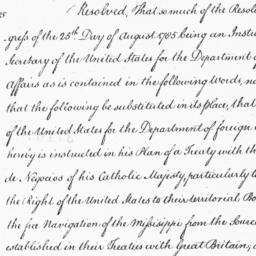 Resolved, That so much of the Resol
gress of the 25th Day of August 1785 being an Instru
Secretary of the United States for the Department
Affairs as is contained in the following Words, n
that the following be substituted in its place, that
of the United States for the Department of foreign
hereby is instructed in his Plan of a Treaty with th
de Negocios of his Catholic Majesty, particularly t
the Right of the United States to their territorial Bo
the free Navigation of the Missisippi from the Source
established in their Treaties with Great Britain,